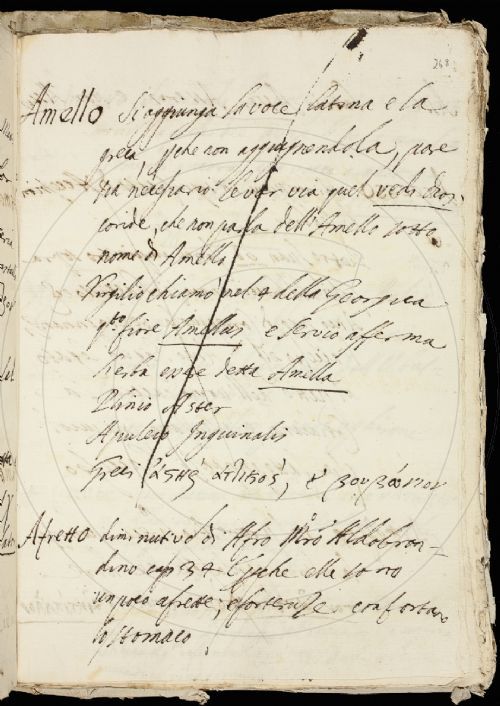 248
Amello Si aggiunga la voce latina e la
greca, pche non aggiugnendola, pare
sia necessario levar via quel vedi Dios
coride, che non parla dell'Amello sotto
nome di Amello
Virgilio chiamò nel 4 della Georgica
qto fiore Amellus e Servio afferma
l'erba esser detta Amella
Plinio Aster
Apuleio Inguinalis
Greci ἀστὴρ ἀττικὸς, & βουβώνιον
Afretto diminutivo di Afro Mro Aldobran-
dino cap 34 pche elle sono
un poco afrette, e forterelle confortano
lo stomaco